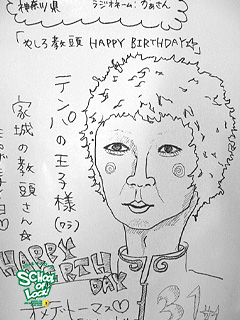 神奈川県
ラジオネーム：かぁさん
「やしろ教頭 HAPPY BIRTHDAY」
テンパの王子様
(ワラ)
家城の教頭さん☆
HAPPY
BIRTHDAY
SCHOOL OF LOCK!
オメデトーマス♡
31才